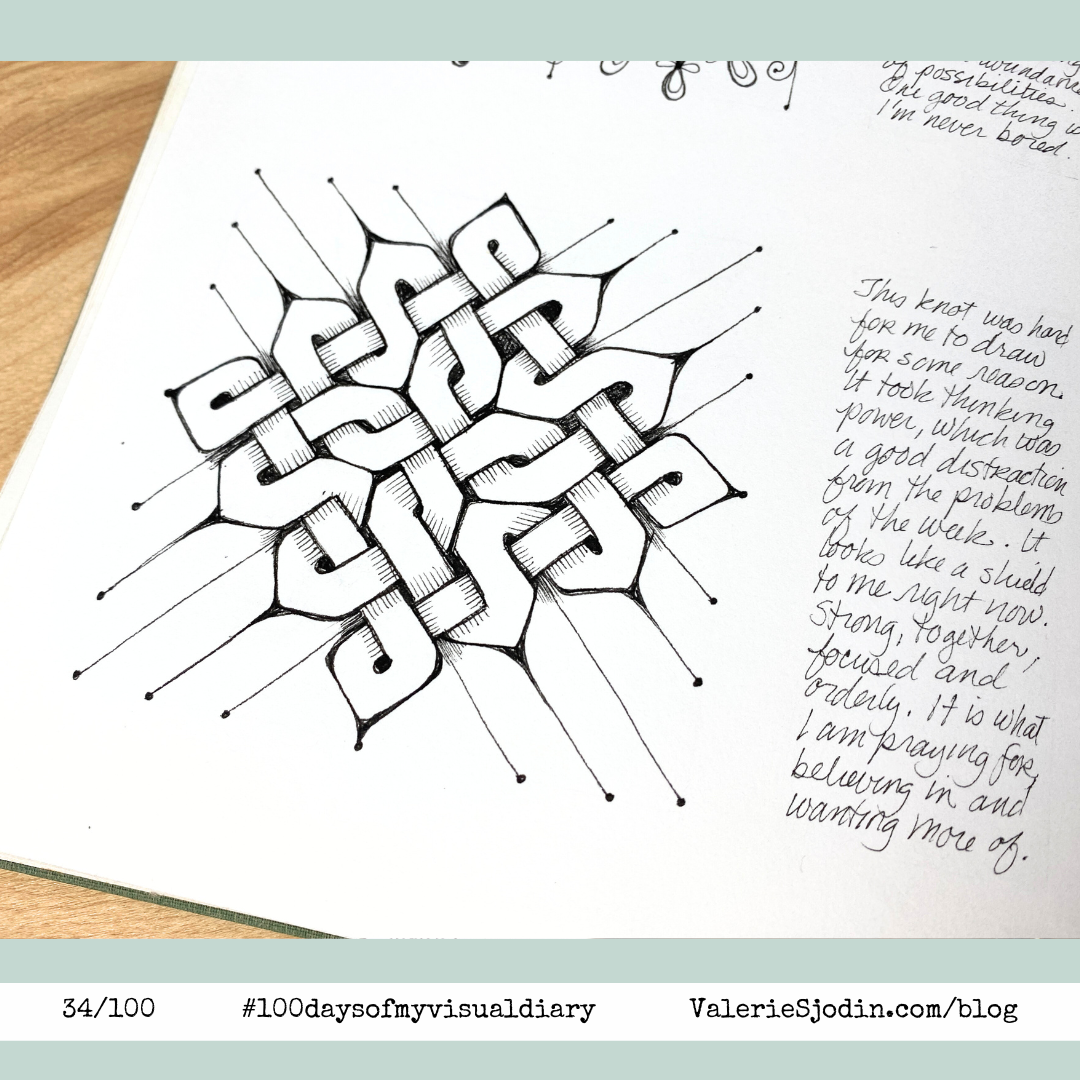 of possibilities.
One good thing is
I'm never bored.
This knot was hard
for me to draw
for some reason.
It took thinking
power, which was
a good distraction
from the problems
of the week. It
looks like a shield
to me right now.
Strong, together,
focused and
orderly. It is what
I am praying for,
believing in and
wanting more of.
34/100
#100daysofmyvisualdiary
ValerieSjodin.com/blog